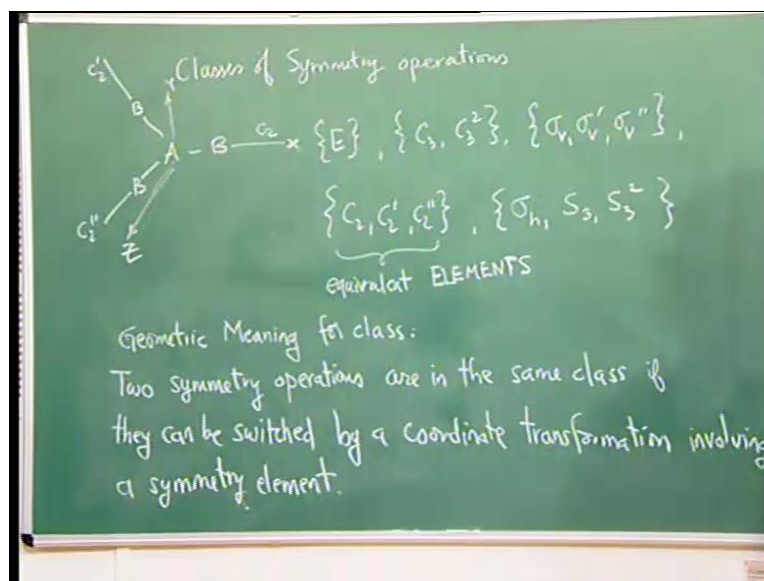 Classes of Symmetry operations
C₂'
B
Y
A – B — C₂ x
B
C₂''
Z
{E}, {C₃, C₃²}, {σᵥ, σᵥ', σᵥ''},
{C₂, C₂', C₂''}, {σₕ, S₃, S₃²}
equivalent ELEMENTS
Geometric Meaning for class:
Two symmetry operations are in the same class if
they can be switched by a coordinate transformation involving
a symmetry element.